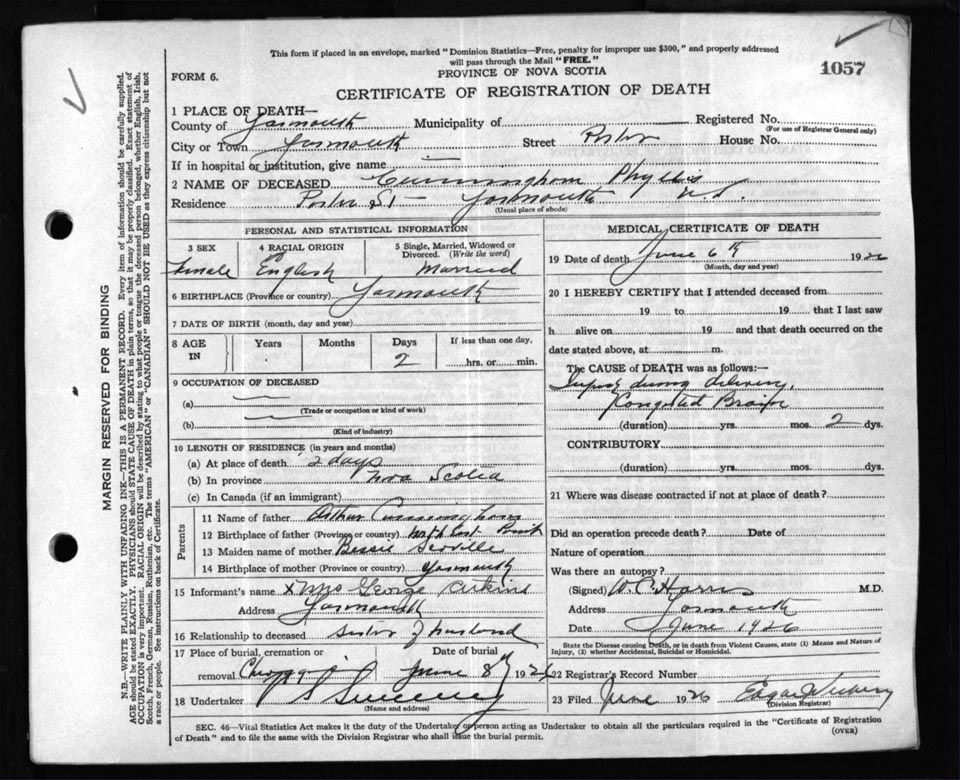 This form if placed in an envelope, marked "Dominion Statistics—Free, penalty for improper use $300," and properly addressed
will pass through the Mail "FREE."
PROVINCE OF NOVA SCOTIA
1057
FORM 6.
CERTIFICATE OF REGISTRATION OF DEATH
1 PLACE OF DEATH—
County of Yarmouth Municipality of Registered No.
(For use of Registrar General only)
City or Town Yarmouth Street Porter House No.
If in hospital or institution, give name
2 NAME OF DECEASED Cunningham Phyllis
Residence Porter St — Yarmouth N.S.
(Usual place of abode)
PERSONAL AND STATISTICAL INFORMATION
3 SEX 4 RACIAL ORIGIN 5 Single, Married, Widowed or Divorced. (Write the word)
Female English Married
6 BIRTHPLACE (Province or country) Yarmouth
7 DATE OF BIRTH (month, day and year)
8 AGE IN Years Months Days If less than one day,
2 hrs. or min.
9 OCCUPATION OF DECEASED
(a)
(Trade or occupation or kind of work)
(b)
(Kind of industry)
10 LENGTH OF RESIDENCE (in years and months)
(a) At place of death 2 days
(b) In province Nova Scotia
(c) In Canada (if an immigrant)
Parents
11 Name of father Arthur Cunningham
12 Birthplace of father (Province or country) East Point
13 Maiden name of mother Bessie Scoville
14 Birthplace of mother (Province or country) Yarmouth
15 Informant's name x Mrs George
Address Yarmouth
16 Relationship to deceased sister of husband
17 Place of burial, cremation or removal Date of burial
June 8th 1926
18 Undertaker Sweeney
(Name and address)
MEDICAL CERTIFICATE OF DEATH
19 Date of death June 6th 1926
(Month, day and year)
20 I HEREBY CERTIFY that I attended deceased from
19 to 19 that I last saw
h alive on 19 and that death occurred on the
date stated above, at m.
The CAUSE of DEATH was as follows:—
during delivery.
Congested Brain
(duration) yrs. mos. 2 dys.
CONTRIBUTORY
(duration) yrs. mos. dys.
21 Where was disease contracted if not at place of death?
Did an operation precede death? Date of
Nature of operation
Was there an autopsy?
(Signed) W. C. Harris M.D.
Address Yarmouth
Date June 1926
State the Disease causing Death, or in death from Violent Causes, state (1) Means and Nature of
Injury, (2) whether Accidental, Suicidal or Homicidal.
22 Registrar's Record Number
23 Filed June 1926 Edgar
(Division Registrar)
SEC. 46—Vital Statistics Act makes it the duty of the Undertaker or person acting as Undertaker to obtain all the particulars required in the "Certificate of Registration
of Death" and to file the same with the Division Registrar who shall issue the burial permit.
(OVER)
MARGIN RESERVED FOR BINDING
N.B.—WRITE PLAINLY WITH UNFADING INK—THIS IS A PERMANENT RECORD. Every item of information should be carefully supplied.
AGE should be stated EXACTLY. PHYSICIANS should STATE CAUSE OF DEATH in plain terms, so that it may be properly classified. Exact statement of
OCCUPATION is very important. RACIAL ORIGIN will be described by stating to what people or tongue the deceased person belonged, whether English, Irish,
Scotch, French, German, Russian, Ruthenian, etc. The terms "AMERICAN" or "CANADIAN" SHOULD NOT BE USED as they express citizenship but not
a race or people. See instructions on back of Certificate.